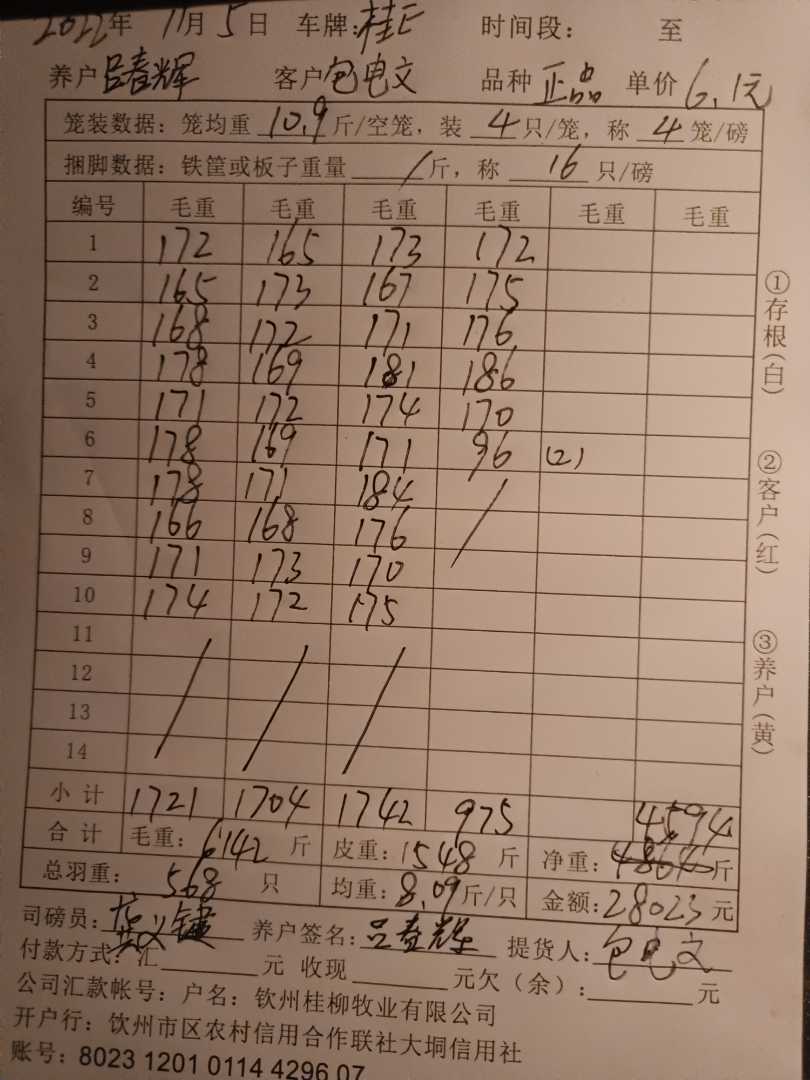 2022年 11月 5日 车牌: 桂E 时间段: 至
养户 吕春辉 客户 包电文 品种 正品 单价 6.1元
笼装数据: 笼均重 10.9 斤/空笼, 装 4 只/笼, 称 4 笼/磅
捆脚数据: 铁筐或板子重量 / 斤, 称 16 只/磅
编号 毛重 毛重 毛重 毛重 毛重 毛重
1 172 165 173 172
2 165 173 167 175
3 168 172 171 176
4 178 169 181 186
5 171 172 174 170
6 178 169 171 96 (2)
7 178 171 184 /
8 166 168 176
9 171 173 170
10 174 172 175
11 / / /
12
13
14
小计 1721 1704 1742 975 4594
合计 毛重: 6142 斤 皮重: 1548 斤 净重: 4864 斤
总羽重: 568 只 均重: 8.09 斤/只 金额: 28023 元
司磅员: 养户签名: 吕春辉 提货人: 包电文
付款方式: 汇 元 收现 元欠(余): 元
公司汇款帐号: 户名: 钦州桂柳牧业有限公司
开户行: 钦州市区农村信用合作联社大垌信用社
账号: 8023 1201 0114 4296 07
①存根(白)
②客户(红)
③养户(黄)